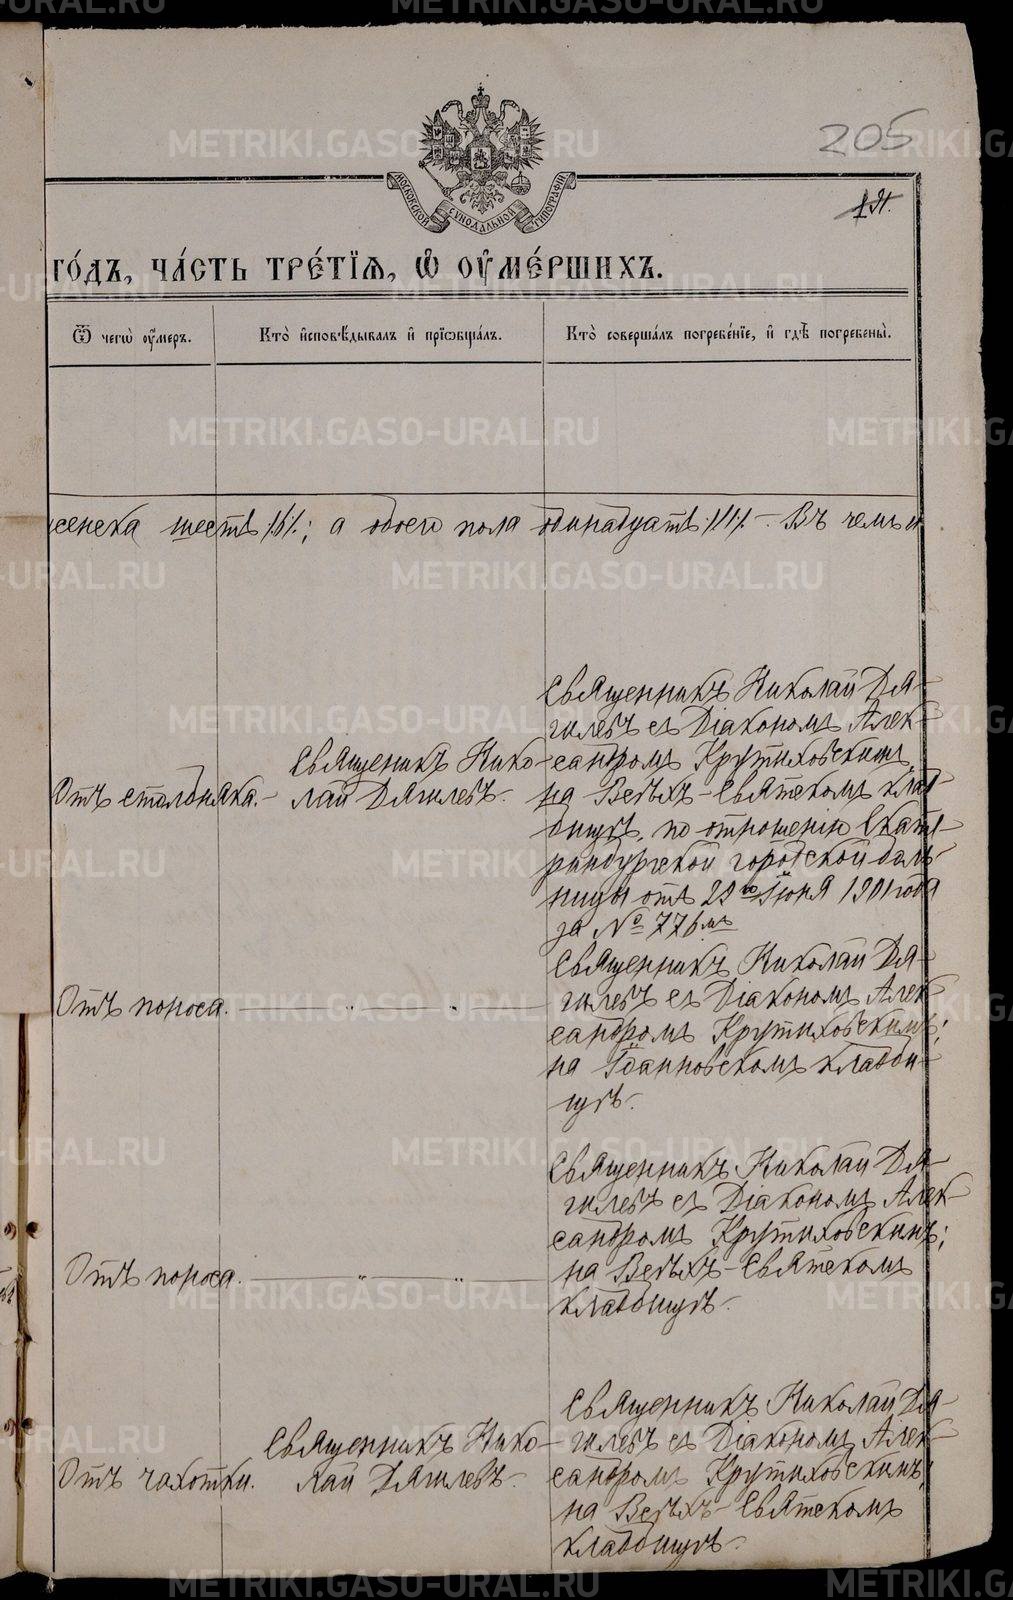 205
МОСКОВСКОЙ СѶНОДАЛЬНОЙ ТИПОГРАФІИ
ГО́ДЪ, ЧА́СТЬ ТРЕ́ТІѦ, Ѡ҆ ОУ҆МЕ́РШИХЪ.
Ѿ чегѡ̀ оу҆́меръ.
Кто̀ и҆сповѣ́дывалъ и҆ прїѡбща́лъ.
Кто̀ соверша́лъ погребе́нїе, и҆ гдѣ̀ погребены̀.
женска шесть /:6:/; а обоего пола одинадцать /:11:/. - Въ чемъ и
Отъ столбняка. -
Священникъ Нико-
лай Дягилевъ. -
Священникъ Николай Дя-
гилевъ съ Діакономъ Алек-
сандромъ Крутиховскимъ
на Всѣхъ-Святскомъ клад-
бищѣ, по отношенію Екате-
ринбургской городской боль-
ницы отъ 29го Іюня 1901 года
за № 776мъ
Отъ поноса.
Священникъ Николай Дя-
гилевъ съ Діакономъ Алек-
сандромъ Крутиховскимъ;
на Іоанновскомъ кладби-
щѣ. -
Отъ поноса.
Священникъ Николай Дя-
гилевъ съ Діакономъ Алек-
сандромъ Крутиховскимъ;
на Всѣхъ-Святскомъ
кладбищѣ. -
Отъ чахотки.
Священникъ Нико-
лай Дягилевъ. -
Священникъ Николай Дя-
гилевъ съ Діакономъ Алек-
сандромъ Крутиховскимъ;
на Всѣхъ-Святскомъ
кладбищѣ. -
METRIKI.GASO-URAL.RU